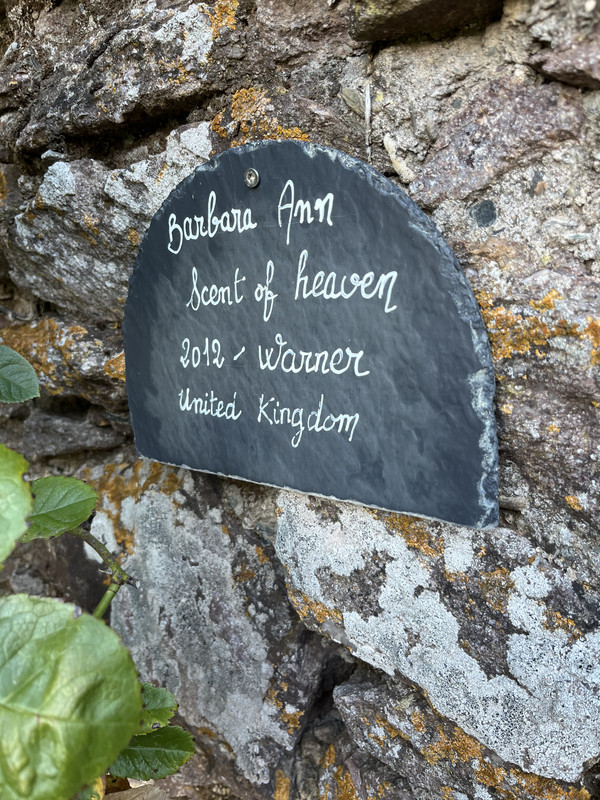 Barbara Ann
Scent of heaven
2012 - Warner
United Kingdom